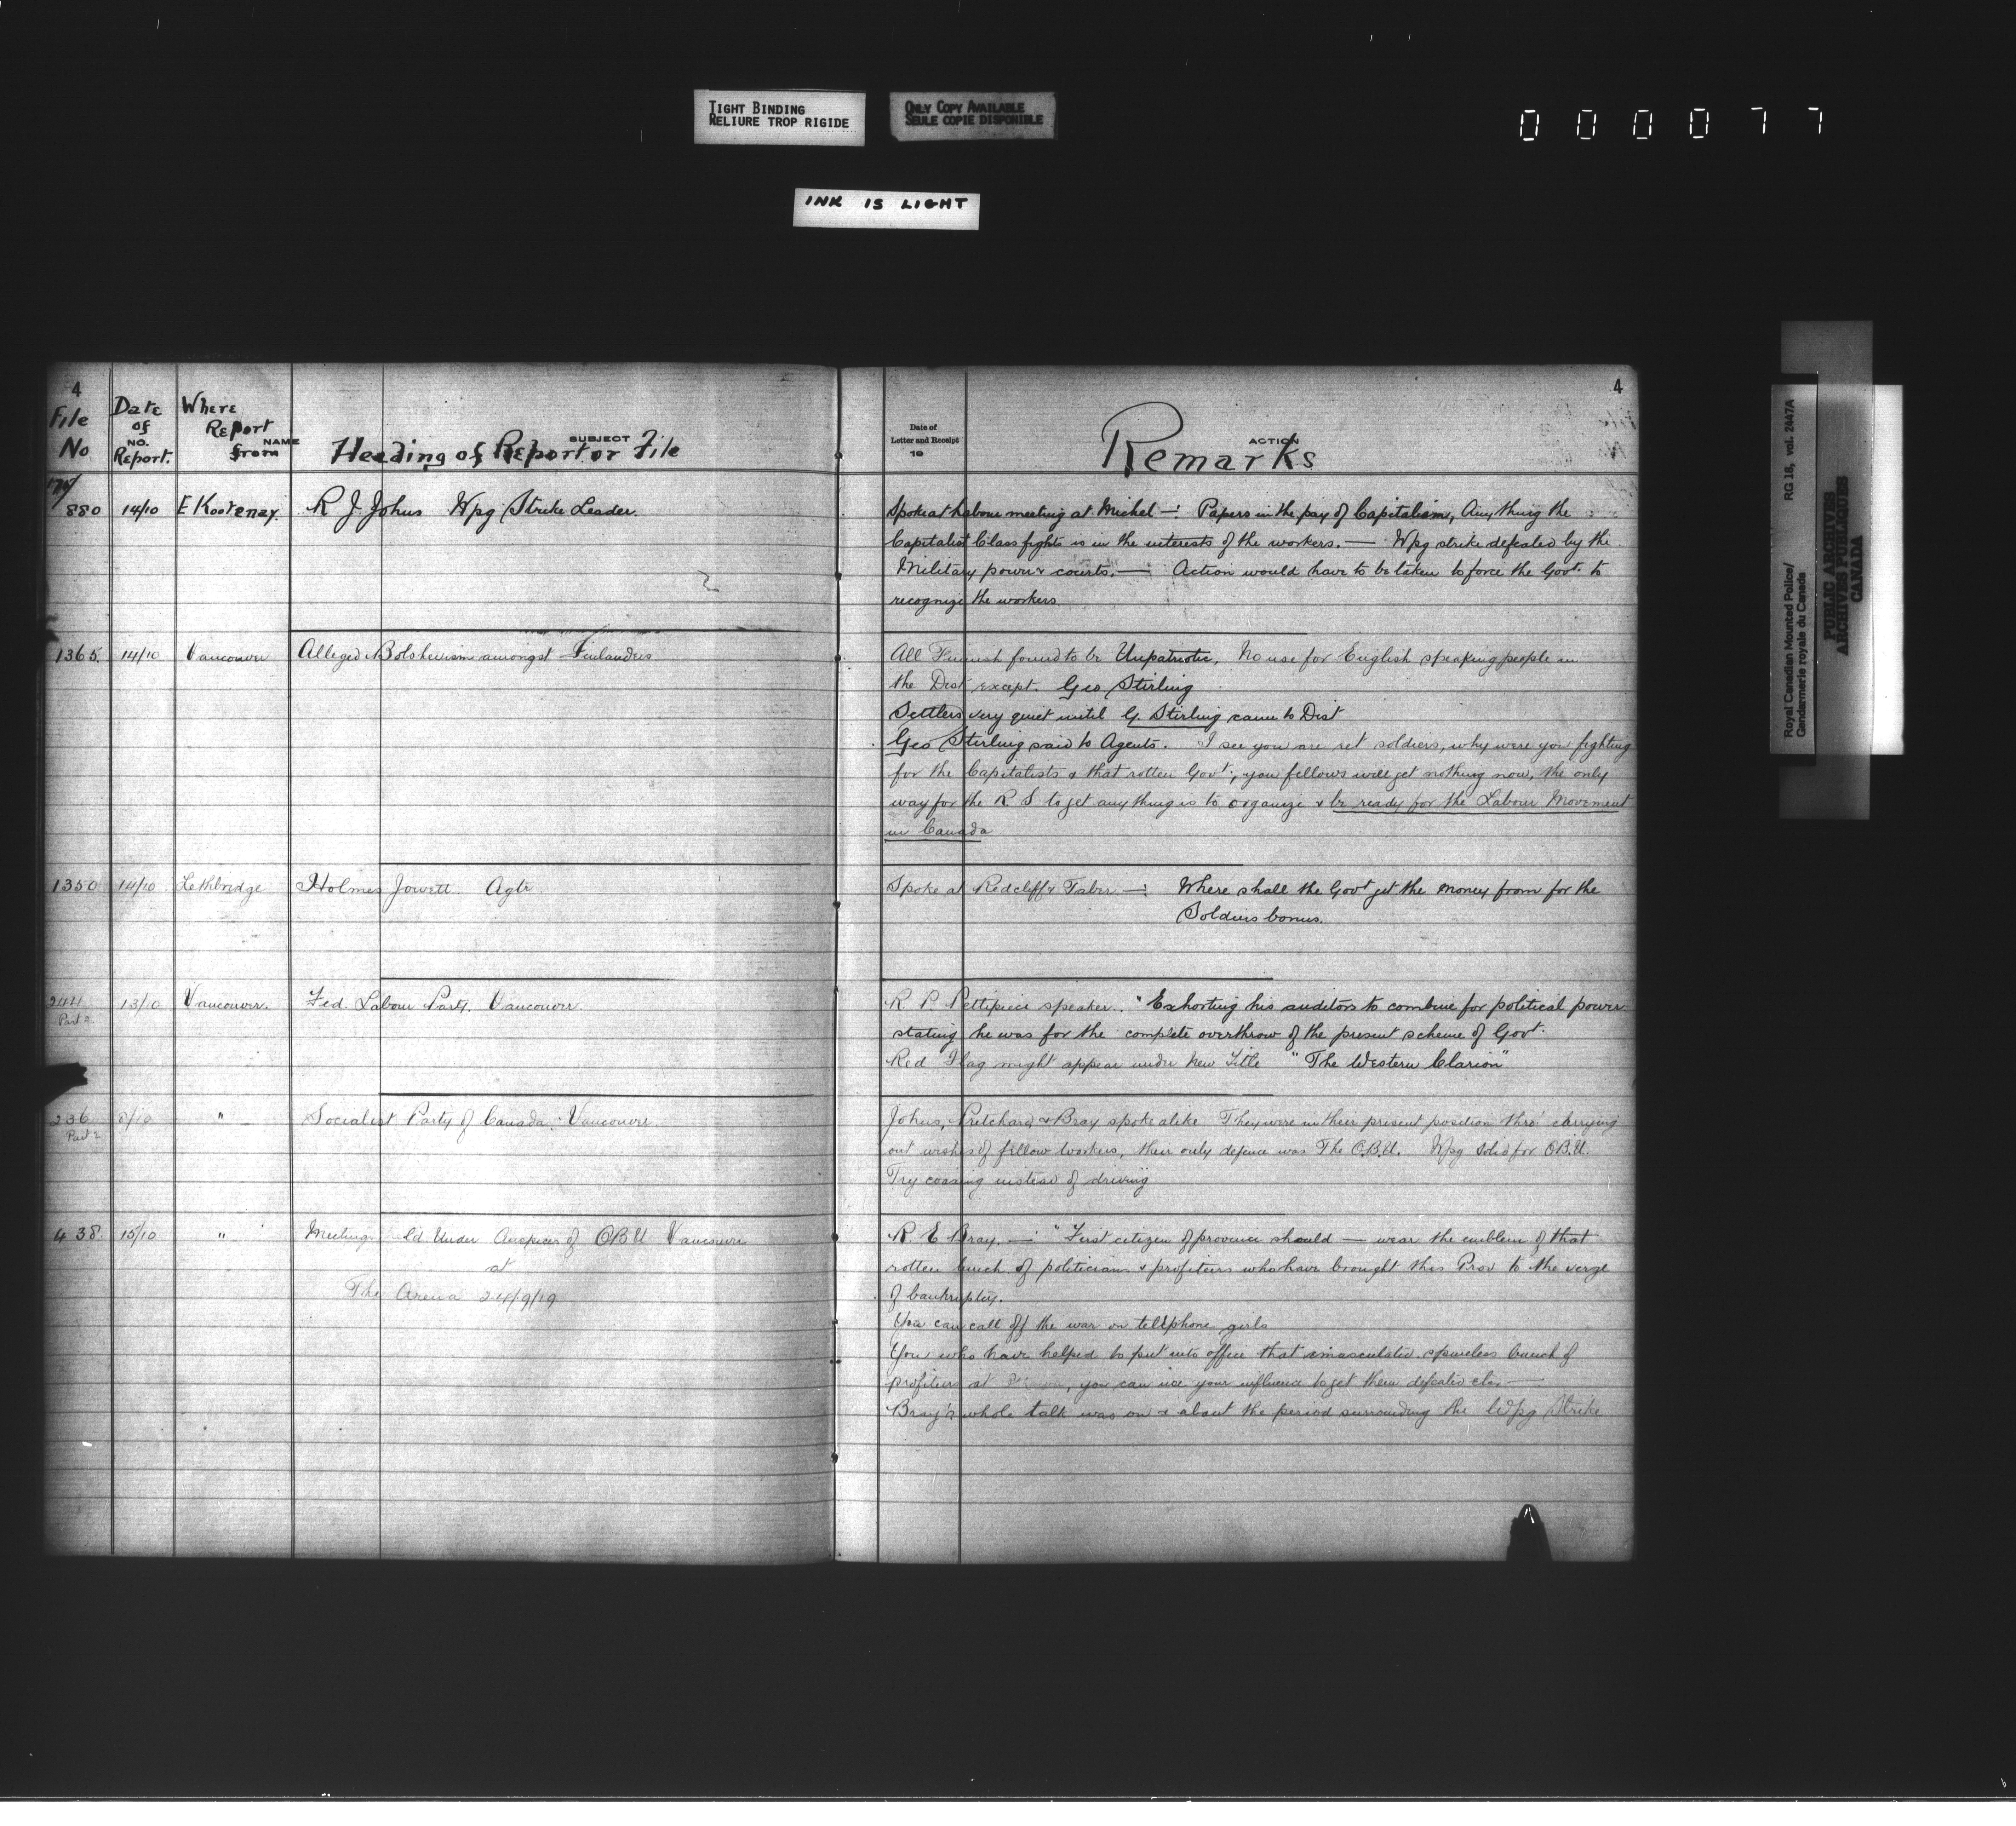 TIGHT BINDING
RELIURE TROP RIGIDE
ONLY COPY AVAILABLE
SEULE COPIE DISPONIBLE
000077
INK IS LIGHT
4
File No
Date of Report.
NO.
Where Report from
NAME
Heading of Report or File
SUBJECT
Date of
Letter and Receipt
19
Remarks
ACTION
4
175/880 14/10 E Kootenay. R J. Johns Wpg Strike Leader.
Spoke at Labour meeting at Michel —: Papers in the pay of Capitalism, Any thing the
Capitalist Class fights is in the interests of the workers. — Wpg strike defeated by the
Military power & courts. — Action would have to be taken to force the Govt. to
recognize the workers
1365. 14/10 Vancouver Alleged Bolshevism amongst Finlanders
All Finnish found to be Unpatriotic, No use for English speaking people in
the Dist except. Geo Stirling
Settlers very quiet until G. Stirling came to Dist
Geo Stirling said to Agents. I see you are ret soldiers, why were you fighting
for the Capitalists & that rotten Govt., you fellows will get nothing now, the only
way for the R S to get any thing is to organize & be ready for the Labour Movement
in Canada
1350 14/10 Lethbridge Holmes Jowett. Agtr
Spoke at Redcliff & Taber —: Where shall the Govt get the money from for the
Soldiers bonus.
244 Part 2. 13/10 Vancouver. Fed. Labour Party. Vancouver.
R. P. Pettipiece speaker. "Exhorting his auditors to combine for political power
stating he was for the complete overthrow of the present scheme of Govt.
Red Flag might appear under New Title "The Western Clarion"
236 Part 2 8/10 " Socialist Party of Canada: Vancouver.
Johns, Pritchard & Bray spoke alike. They were in their present position thro' carrying
out wishes of fellow workers, their only defence was The O.B.U. Wpg solid for O.B.U.
Try coaxing instead of driving
438 15/10 " Meeting held Under Auspices of OBU Vancouver
at
The Arena 24/9/19
R. E Bray. —: "First citizen of province should — wear the emblem of that
rotten bunch of politicians & profiteers who have brought this Prov to the verge
of bankruptcy.
You can call off the war on telephone girls
You who have helped to put into office that emasculated spineless bunch of
profiteers at, you can use your influence to get them defeated etc. —
Bray's whole talk was on & about the period surrounding the Wpg Strike
Royal Canadian Mounted Police/
Gendarmerie royale du Canada
RG 18, vol. 2447A
PUBLIC ARCHIVES
ARCHIVES PUBLIQUES
CANADA